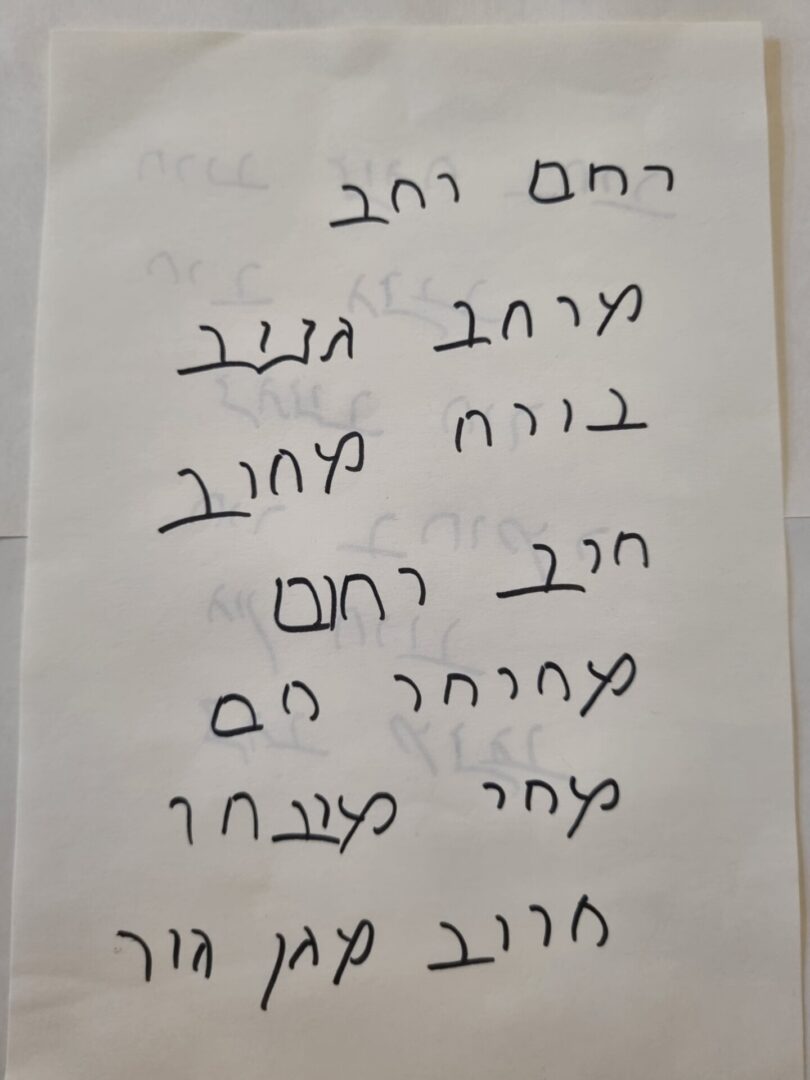 רחם רחב
מרחב גנייב
בורח מחוב
חרב רחום
מחרחר חם
מחר מיבחר
חרוב מגן גור